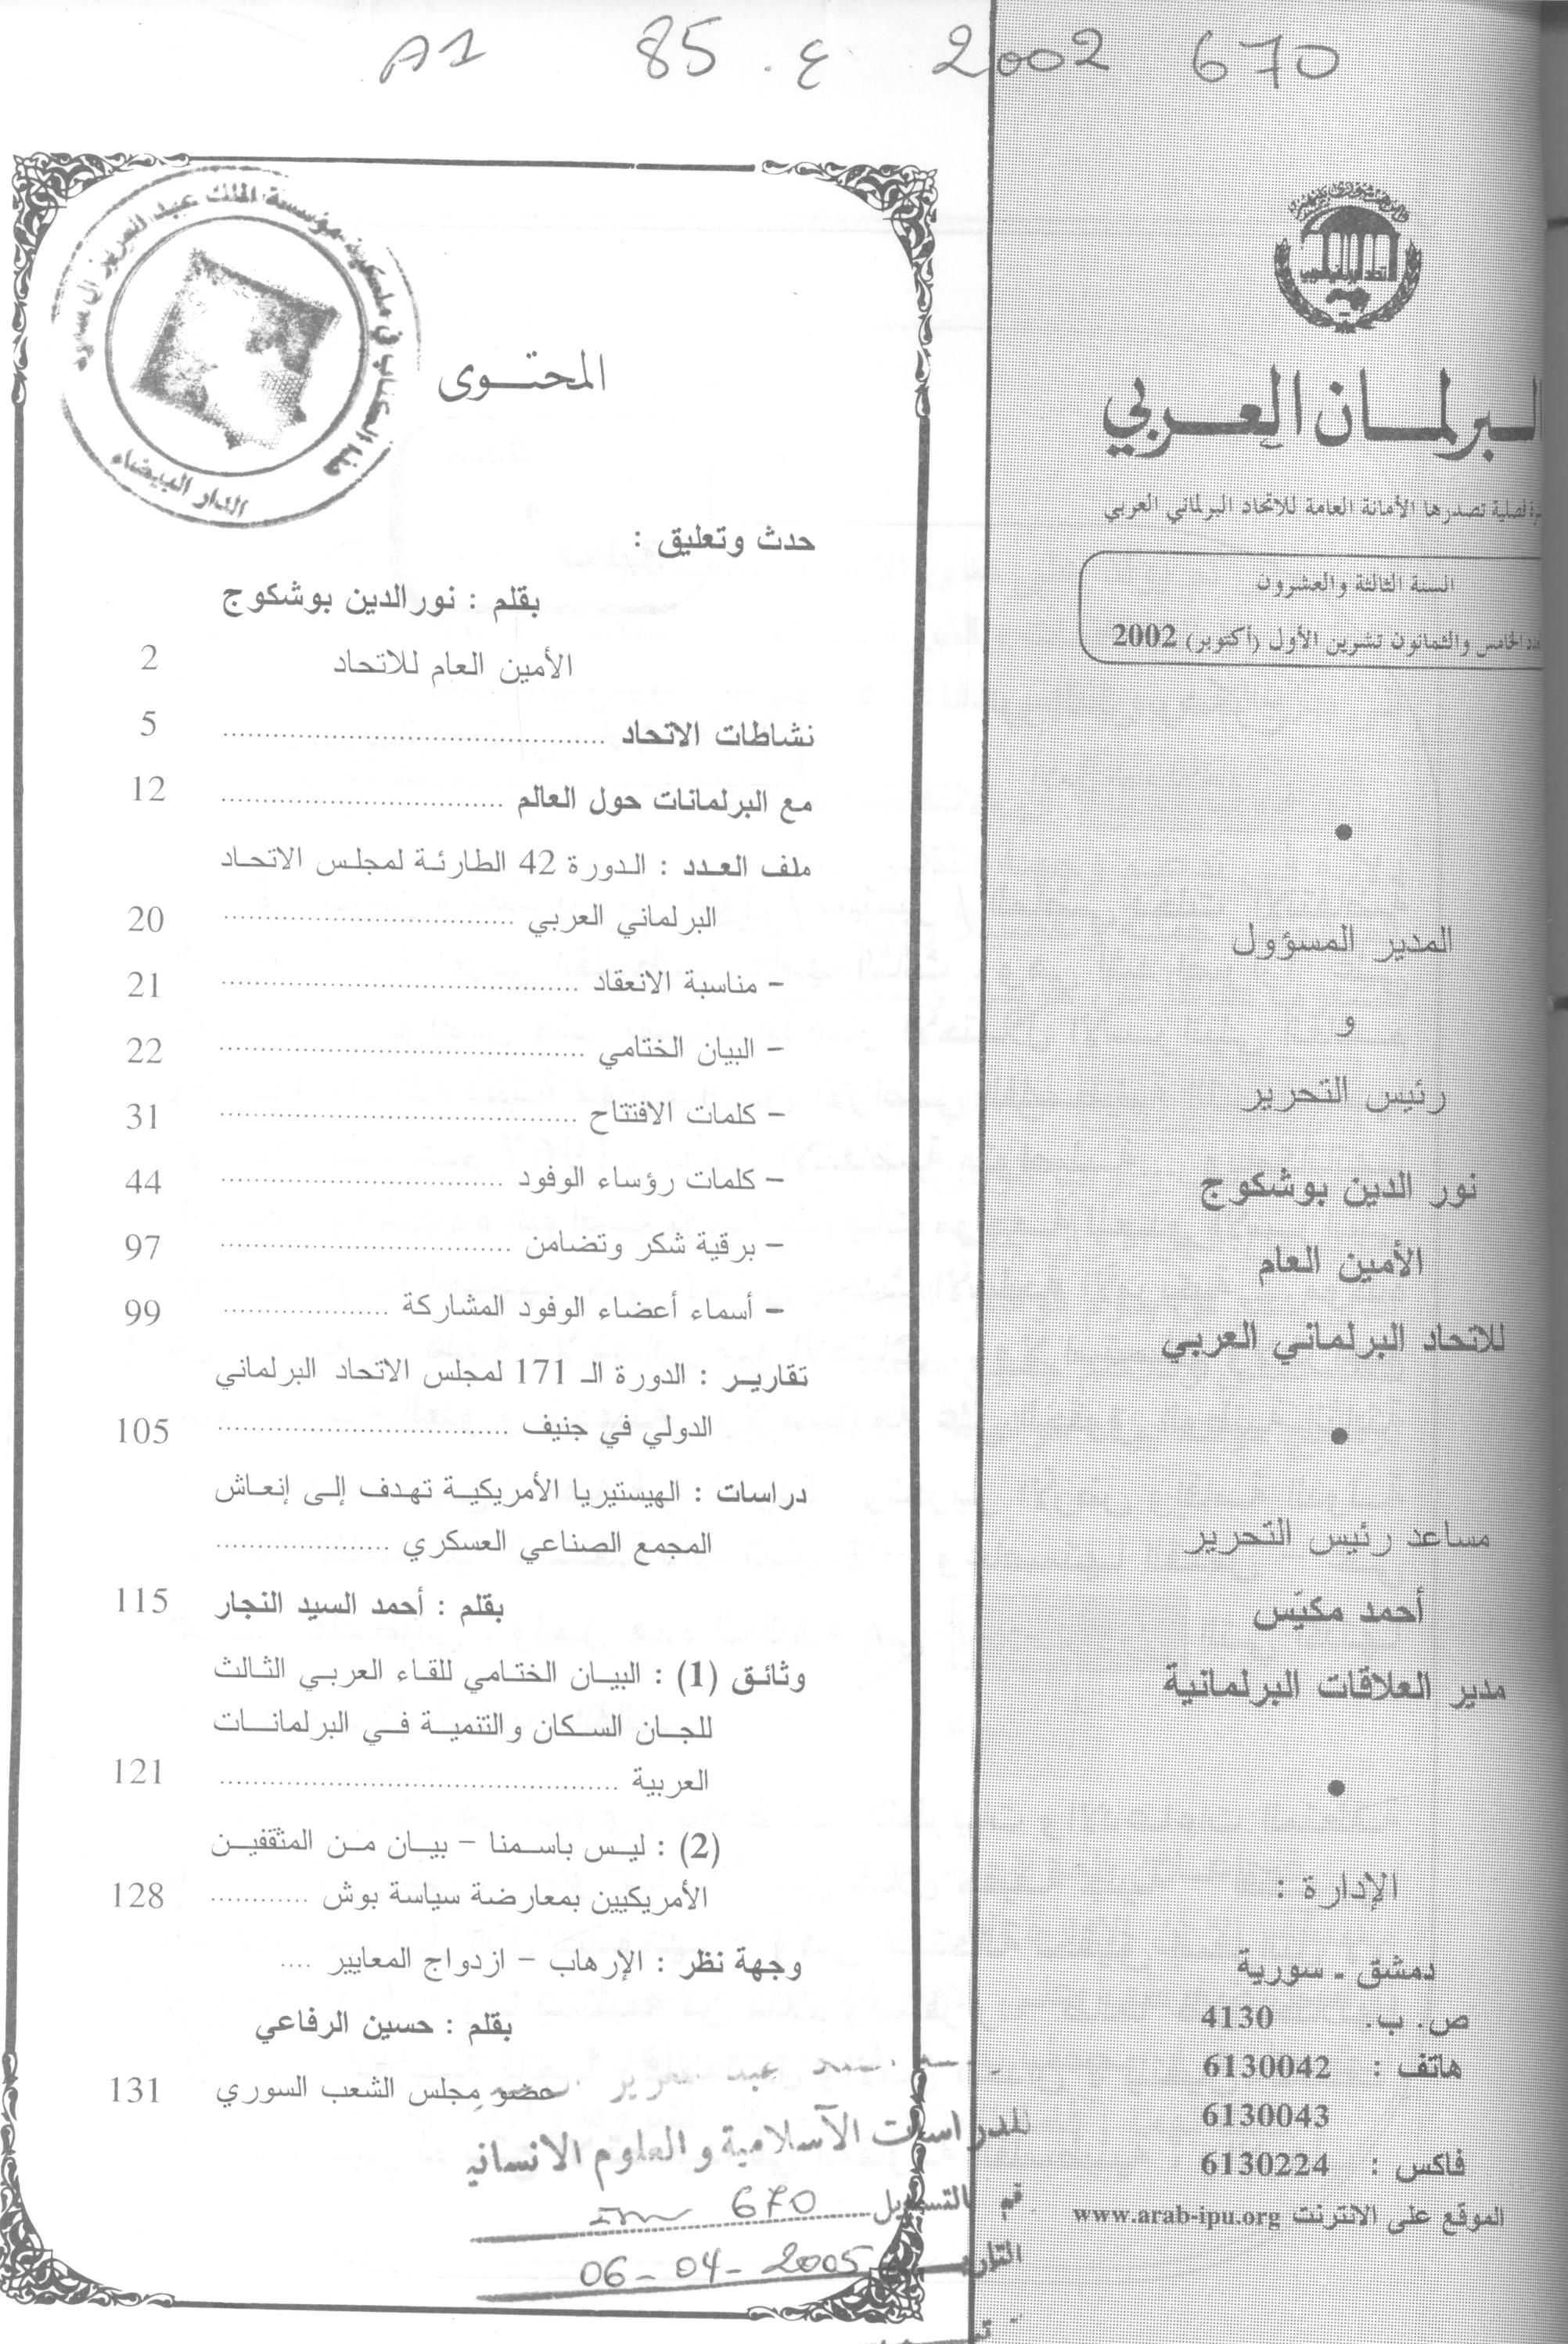 A1 85 . ع 2002 670
البرلمـــان العـــربي
تصدرها الأمانة العامة للاتحاد البرلماني العربي
السنة الثالثة والعشرون
الخامس والثمانون تشرين الأول (أكتوبر) 2002
المدير المسؤول
و
رئيس التحرير
نور الدين بوشكوج
الأمين العام
للاتحاد البرلماني العربي
مساعد رئيس التحرير
أحمد مكيّس
مدير العلاقات البرلمانية
الإدارة :
دمشق ـ سورية
ص. ب. 4130
هاتف : 6130042
6130043
فاكس : 6130224
الموقع على الانترنت www.arab-ipu.org
مؤسسة الملك عبد العزيز آل سعود
الدار البيضاء
المحتـــوى
حدث وتعليق :
بقلم : نورالدين بوشكوج
الأمين العام للاتحاد 2
نشاطات الاتحاد ........................................... 5
مع البرلمانات حول العالم ................................ 12
ملف العـدد : الـدورة 42 الطارئـة لمجلـس الاتحـاد
البرلماني العربي ................................. 20
– مناسبة الانعقاد ........................................ 21
– البيان الختامي ......................................... 22
– كلمات الافتتاح ......................................... 31
– كلمات رؤساء الوفود ................................ 44
– برقية شكر وتضامن ................................. 97
– أسماء أعضاء الوفود المشاركة ................... 99
تقاريـر : الدورة الـ 171 لمجلس الاتحاد البرلماني
الدولي في جنيف ................................. 105
دراسات : الهيستيريا الأمريكيـة تهـدف إلـى إنعـاش
المجمع الصناعي العسكري ....................
بقلم : أحمد السيد النجار 115
وثائـق (1) : البيـان الختـامي للقـاء العربـي الثـالث
للجـان السـكان والتنميـة فـي البرلمانـــات
العربية ............................................. 121
(2) : ليـس باسـمنا – بيـان مـن المثقفيـن
الأمريكيين بمعارضة سياسة بوش ............ 128
وجهة نظر : الإرهاب – ازدواج المعايير ....
بقلم : حسين الرفاعي
عضو مجلس الشعب السوري 131
للدراسات الآسلامية والعلوم الانسانية
670
06 - 04 - 2005